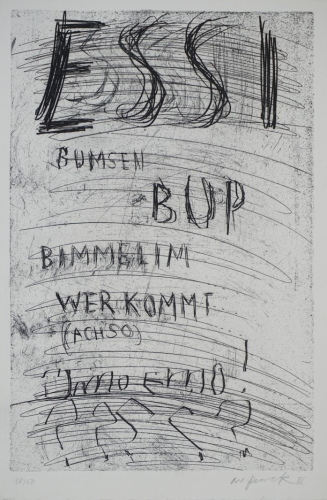 ESSI
BUMSEN
BUP
BIMMELIM
WER KOMMT
(ACHSO)